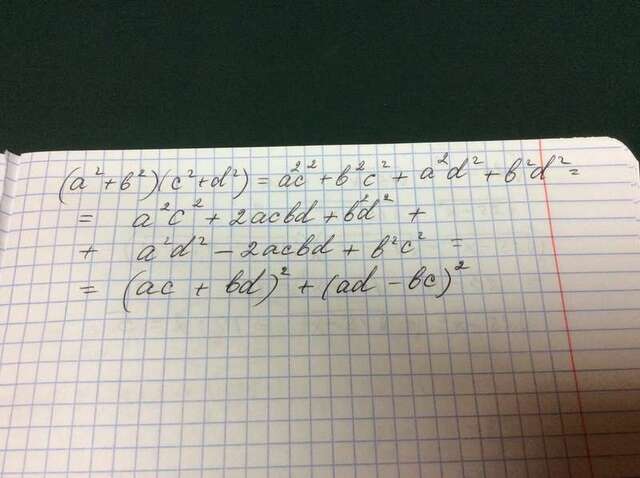 (a²+b²)(c²+d²) = a²c² + b²c² + a²d² + b²d² =
= a²c² + 2acbd + b²d² +
+ a²d² - 2acbd + b²c² =
= (ac + bd)² + (ad - bc)²